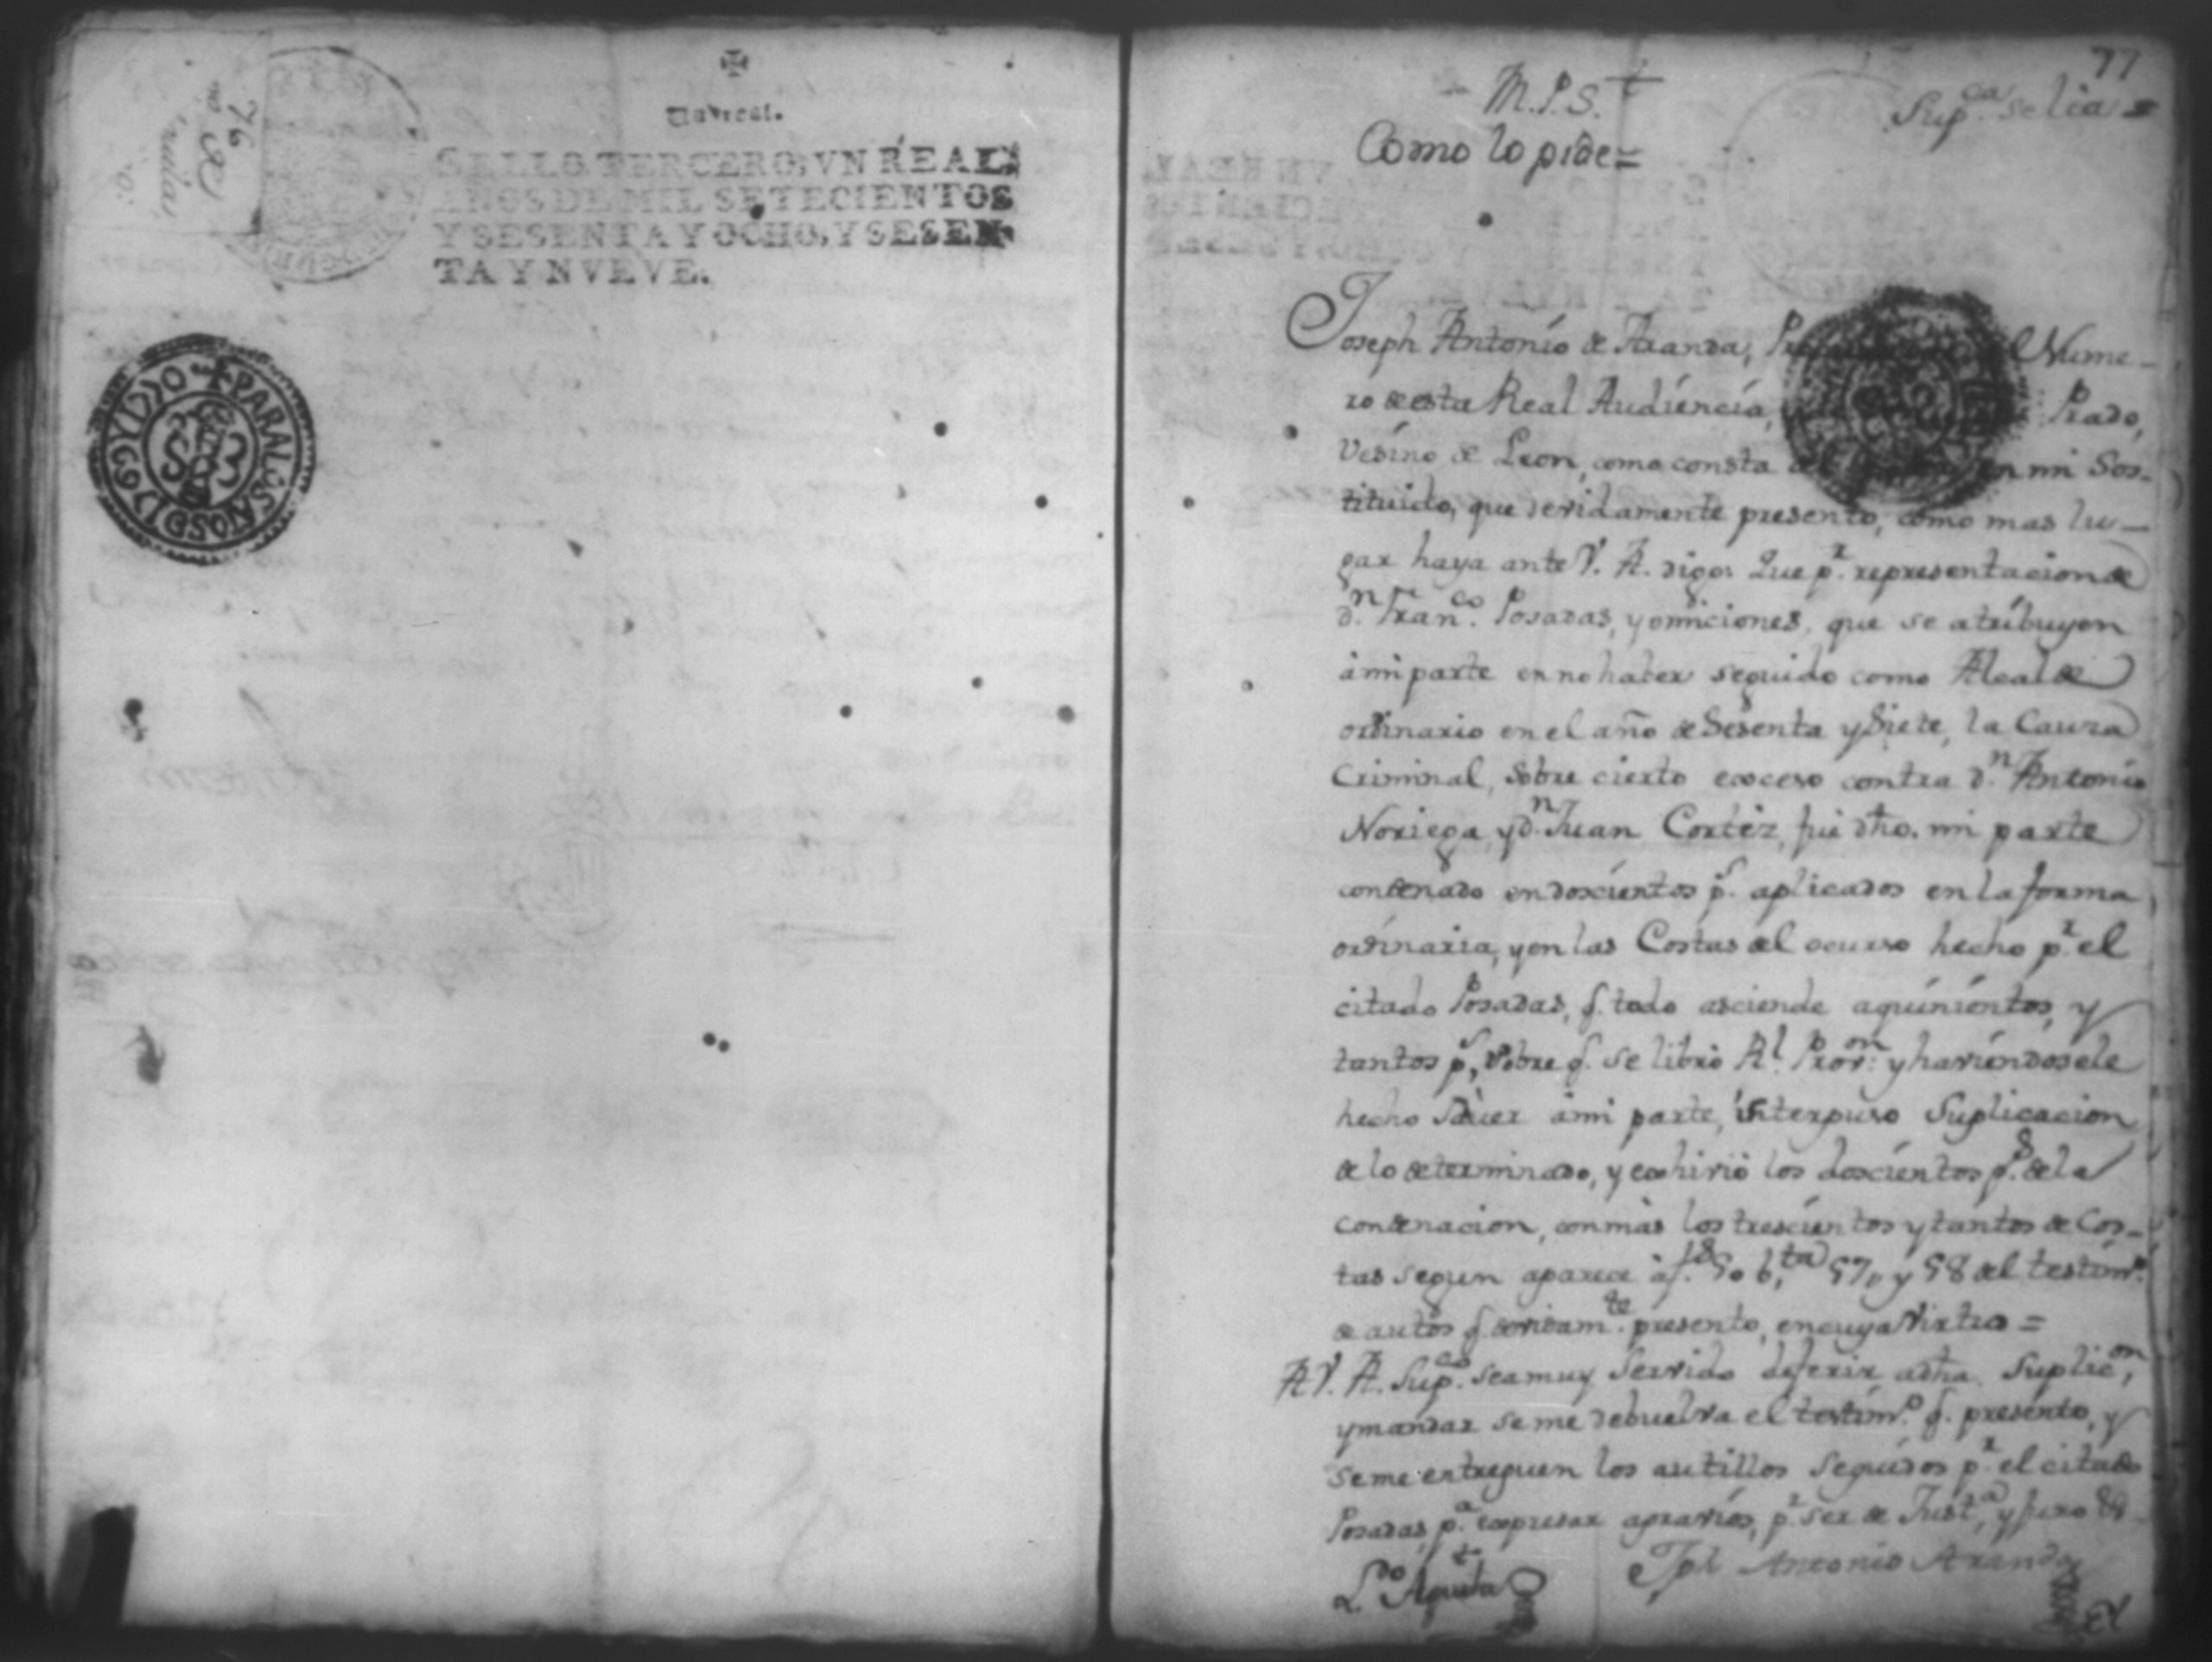 76
Un real.
SELLO TERCERO, VN REAL,
AÑOS DE MIL SETECIENTOS
Y SESENTA Y OCHO, Y SESEN-
TA Y NVEVE.
PARA LOS AÑOS D
77
M.P.S.
Sup.ca
Como lo pide=
Joseph Antonio de Aranda, Nume-
ro de esta Real Audiencia, Prado,
Vesino de Leon, como consta en mi Sos-
tituido, que devidamente presento, como mas lu-
gar haya ante V. A. digo: Que p.r representacion de
d.n Fran.co Posadas, y omiciones, que se atribuyen
à mi parte en no haber seguido como Alcalde
ordinario en el año de Sesenta y Siete, la Causa
Criminal, Sobre cierto exceso contra d.n Antonio
Noriega, y d.n Juan Cortéz, fué dho. mi parte
condenado en doscientos p.s aplicados en la forma
ordinaria, y en las Costas del ocurso hecho p.r el
citado Posadas, q. todo asciende a quinientos, y
tantos p.s, sobre q. se librò R.l Prov.on y haviendosele
hecho saver à mi parte, interpuso Suplicacion
de lo determinado, y exhiviò los doscientos p.s de la
condenacion, con màs los trescientos y tantos de Cos-
tas segun aparece à f.s 50 b.ta 57, y 58 del testim.o
de autos q. devidam.te presento, en cuya Virtud =
A V. A. Sup.co sea muy Servido deferir a dha. Suplic.on,
y mandar se me debuelva el testim.o q. presento, y
se me entreguen los autillos Seguidos p.r el citado
Posadas, p.a expresar agravios, p.r ser de Just.a, y juro &a
L.do Jph Antonio Aranda